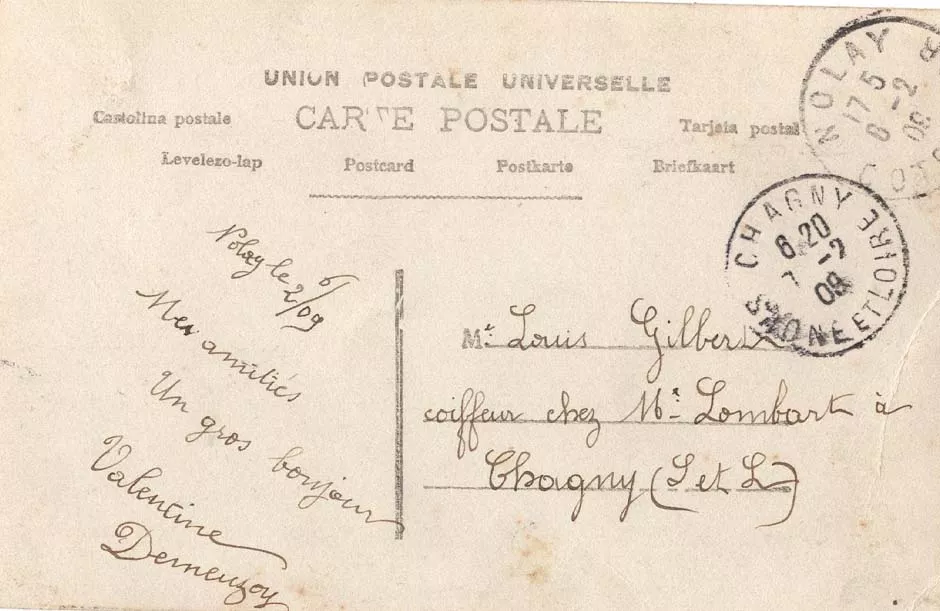 UNION POSTALE UNIVERSELLE
CARTE POSTALE
Cartolina postale
Tarjeta postal
Levelezo-lap Postcard Postkarte Briefkaart
NOLAY
17 5
6 -2
09
CHAGNY
6 20
-2
09
SAONE ET LOIRE
Nolay le 6/2/09
Mes amitiés
Un gros bonjour
Valentine
Demeuzoy
Mr. Louis Gilbert
coiffeur chez Mr. Lombart à
Chagny (S et L)